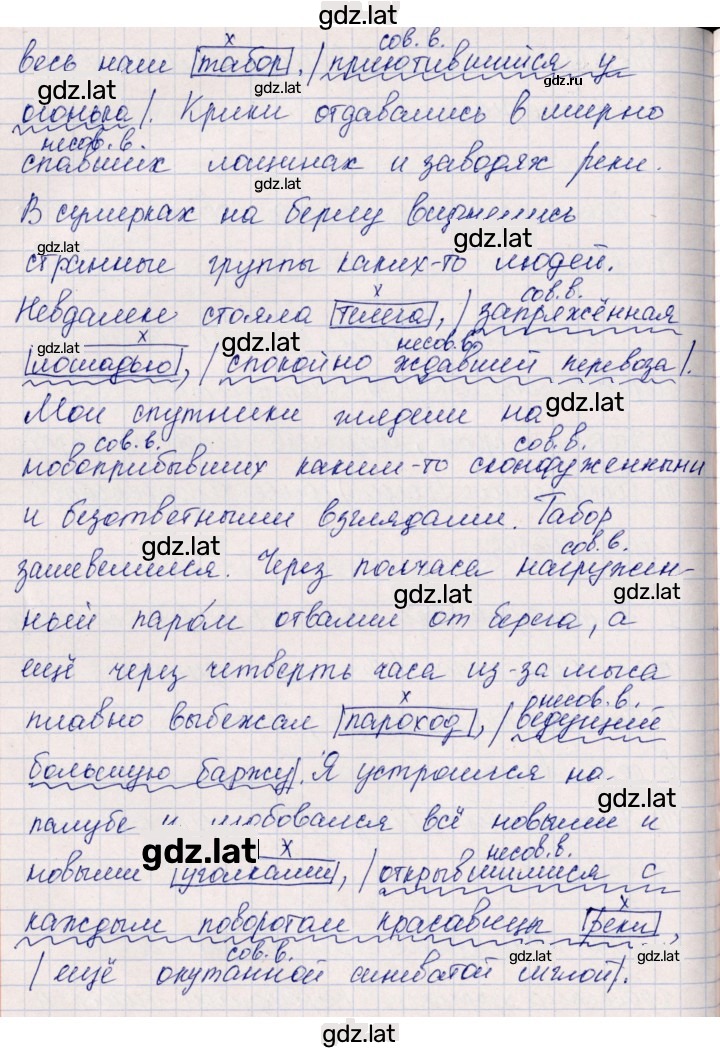 gdz.lat
х сов. в.
весь наш табор, / приютившийся у
gdz.lat gdz.ru
огонька /. Крики отдавались в мирно
несов. в.
спавших лощинах и заводях реки.
gdz.lat
В сумерках на берегу виднелись
gdz.lat gdz.lat
странные группы каких-то людей.
х сов. в.
Невдалеке стояла телега, / запряжённая
gdz.lat х gdz.lat несов. в.
лошадью, / спокойно ждавшей перевоза /.
Мои спутники глядели на gdz.lat
сов. в. сов. в.
новоприбывших каким-то сконфуженными
и безответными взглядами. Табор
gdz.lat сов. в.
зашевелился. Через полчаса нагружен-
gdz.lat gdz.lat
ный паро́м отвалил от берега, а
ещё через четверть часа из-за мыса
х несов. в.
плавно выбежал пароход, / ведущий
большую баржу /. Я устроился на
gdz.lat
палубе и любовался всё новыми и
gdz.lat х несов. в.
новыми уголками, / открывшимися с
х
каждым поворотом красавицы реки,
сов. в. gdz.lat gdz.lat
/ ещё окутанной синеватой мглой /.
gdz.lat